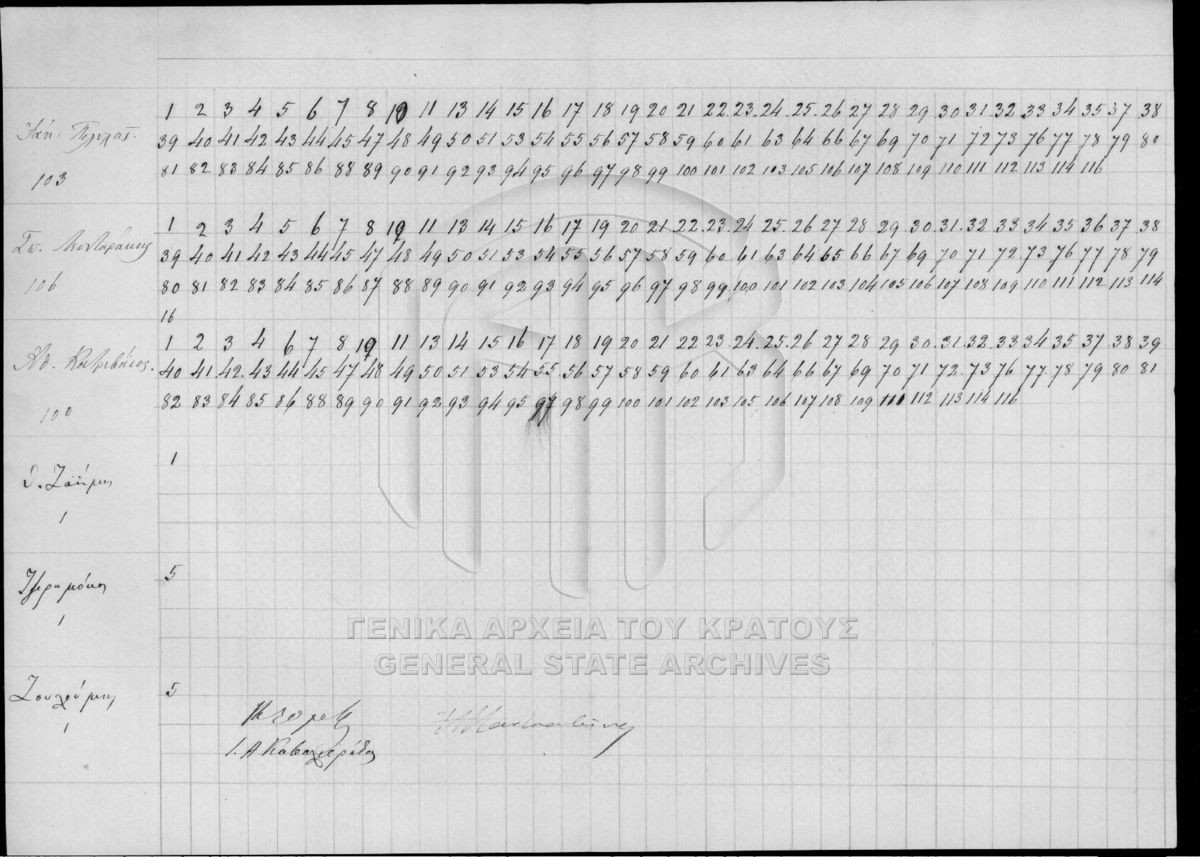 1 2 3 4 5 6 7 8 10 11 13 14 15 16 17 18 19 20 21 22 23 24 25 26 27 28 29 30 31 32 33 34 35 37 38
39 40 41 42 43 44 45 47 48 49 50 51 53 54 55 56 57 58 59 60 61 63 64 66 67 69 70 71 72 73 76 77 78 79 80
103 81 82 83 84 85 86 88 89 90 91 92 93 94 95 96 97 98 99 100 101 102 103 105 106 107 108 109 110 111 112 113 114 116
1 2 3 4 5 6 7 8 10 11 13 14 15 16 17 19 20 21 22 23 24 25 26 27 28 29 30 31 32 33 34 35 36 37 38
Σπ. 39 40 41 42 43 44 45 47 48 49 50 51 53 54 55 56 57 58 59 60 61 63 64 65 66 67 69 70 71 72 73 76 77 78 79
106 80 81 82 83 84 85 86 87 88 89 90 91 92 93 94 95 96 97 98 99 100 101 102 103 104 105 106 107 108 109 110 111 112 113 114
16
1 2 3 4 6 7 8 10 11 13 14 15 16 17 18 19 20 21 22 23 24 25 26 27 28 29 30 31 32 33 34 35 37 38 39
Αθ. 40 41 42 43 44 45 47 48 49 50 51 53 54 55 56 57 58 59 60 61 63 64 66 67 69 70 71 72 73 76 77 78 79 80 81
100 82 83 84 85 86 88 89 90 91 92 93 94 95 97 98 99 100 101 102 103 105 106 107 108 109 111 112 113 114 116
1
Θ. Ζαΐμης
1
5
1
ΓΕΝΙΚΑ ΑΡΧΕΙΑ ΤΟΥ ΚΡΑΤΟΥΣ
GENERAL STATE ARCHIVES
5
1